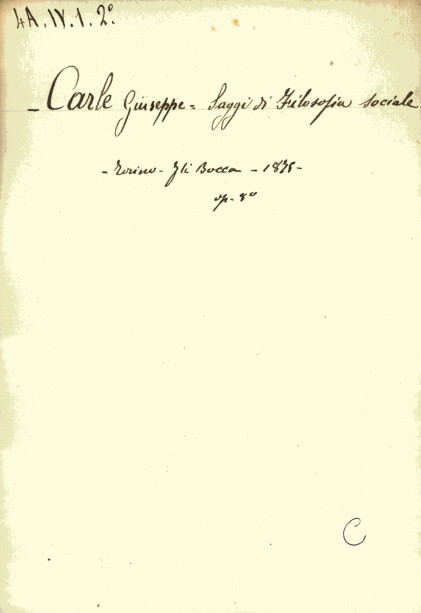 4A. IV. 1. 2º
- Carle Giuseppe = Saggi di Filosofia sociale.
- Torino - Fli Bocca - 1875 -
op. 8º
C